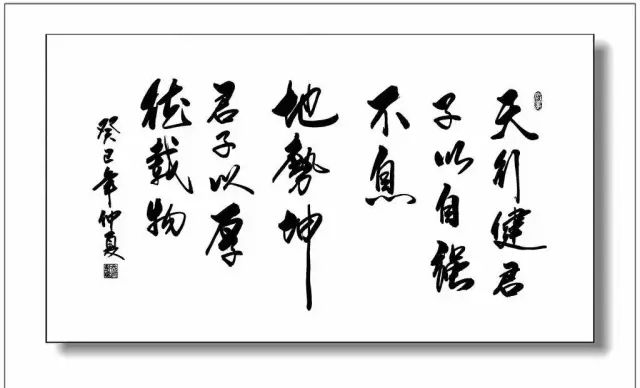 天行健君
子以自强
不息
地勢坤
君子以厚
德載物
癸巳年仲夏